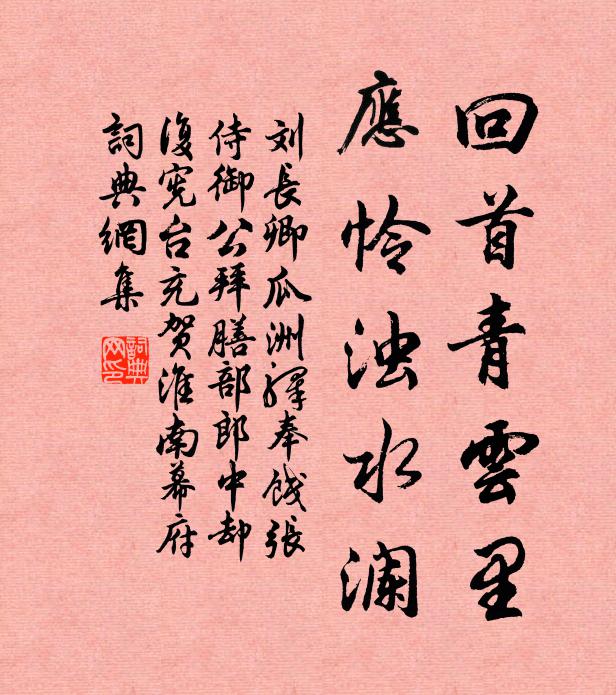 回首青雲里
應怜浊水澜
刘長卿瓜洲驛奉饯張
侍御公拜膳部郎中却
復宪台充贺淮南幕府
詞典網集
詞典網印